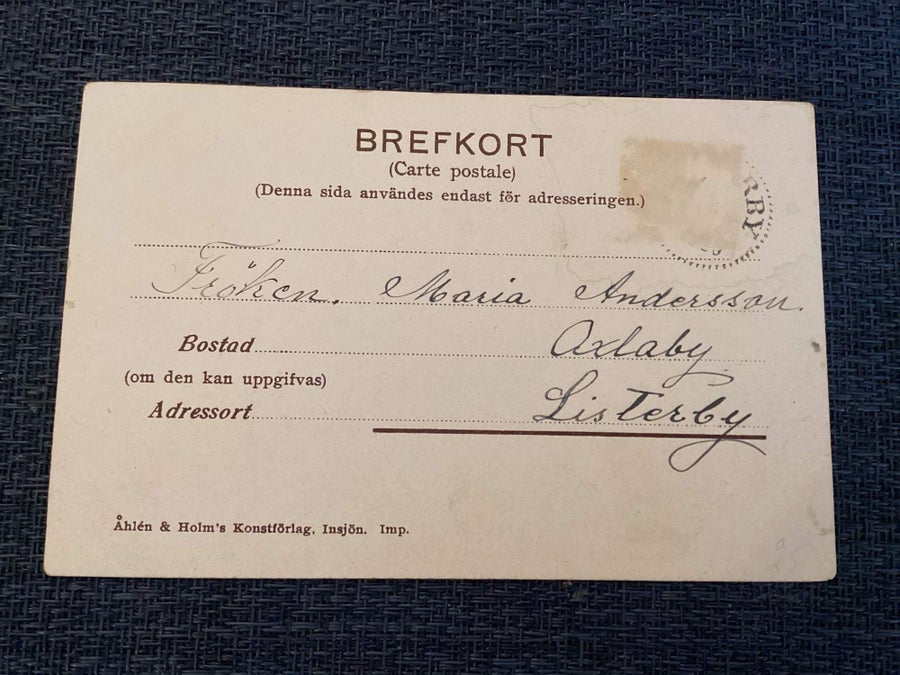 BREFKORT
(Carte postale)
(Denna sida användes endast för adresseringen.)
RBY
Fröken. Maria Andersson
Bostad Axlaby
(om den kan uppgifvas)
Adressort Listerby
Åhlén & Holm's Konstförlag, Insjön. Imp.